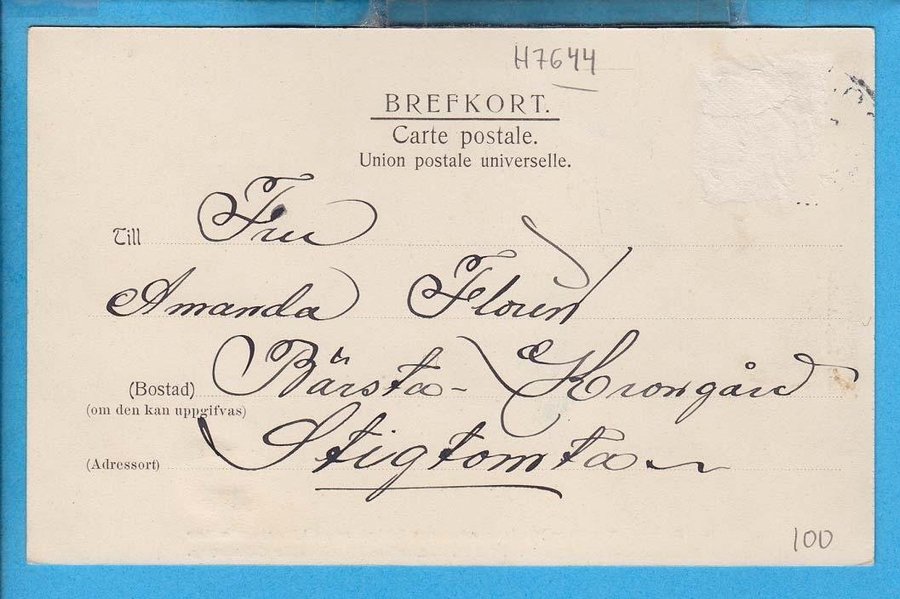 H7644
BREFKORT.
Carte postale.
Union postale universelle.
Till Fru
Amanda Floren
(Bostad) Bärsta- Krongård
(om den kan uppgifvas)
(Adressort) Stigtomta
100